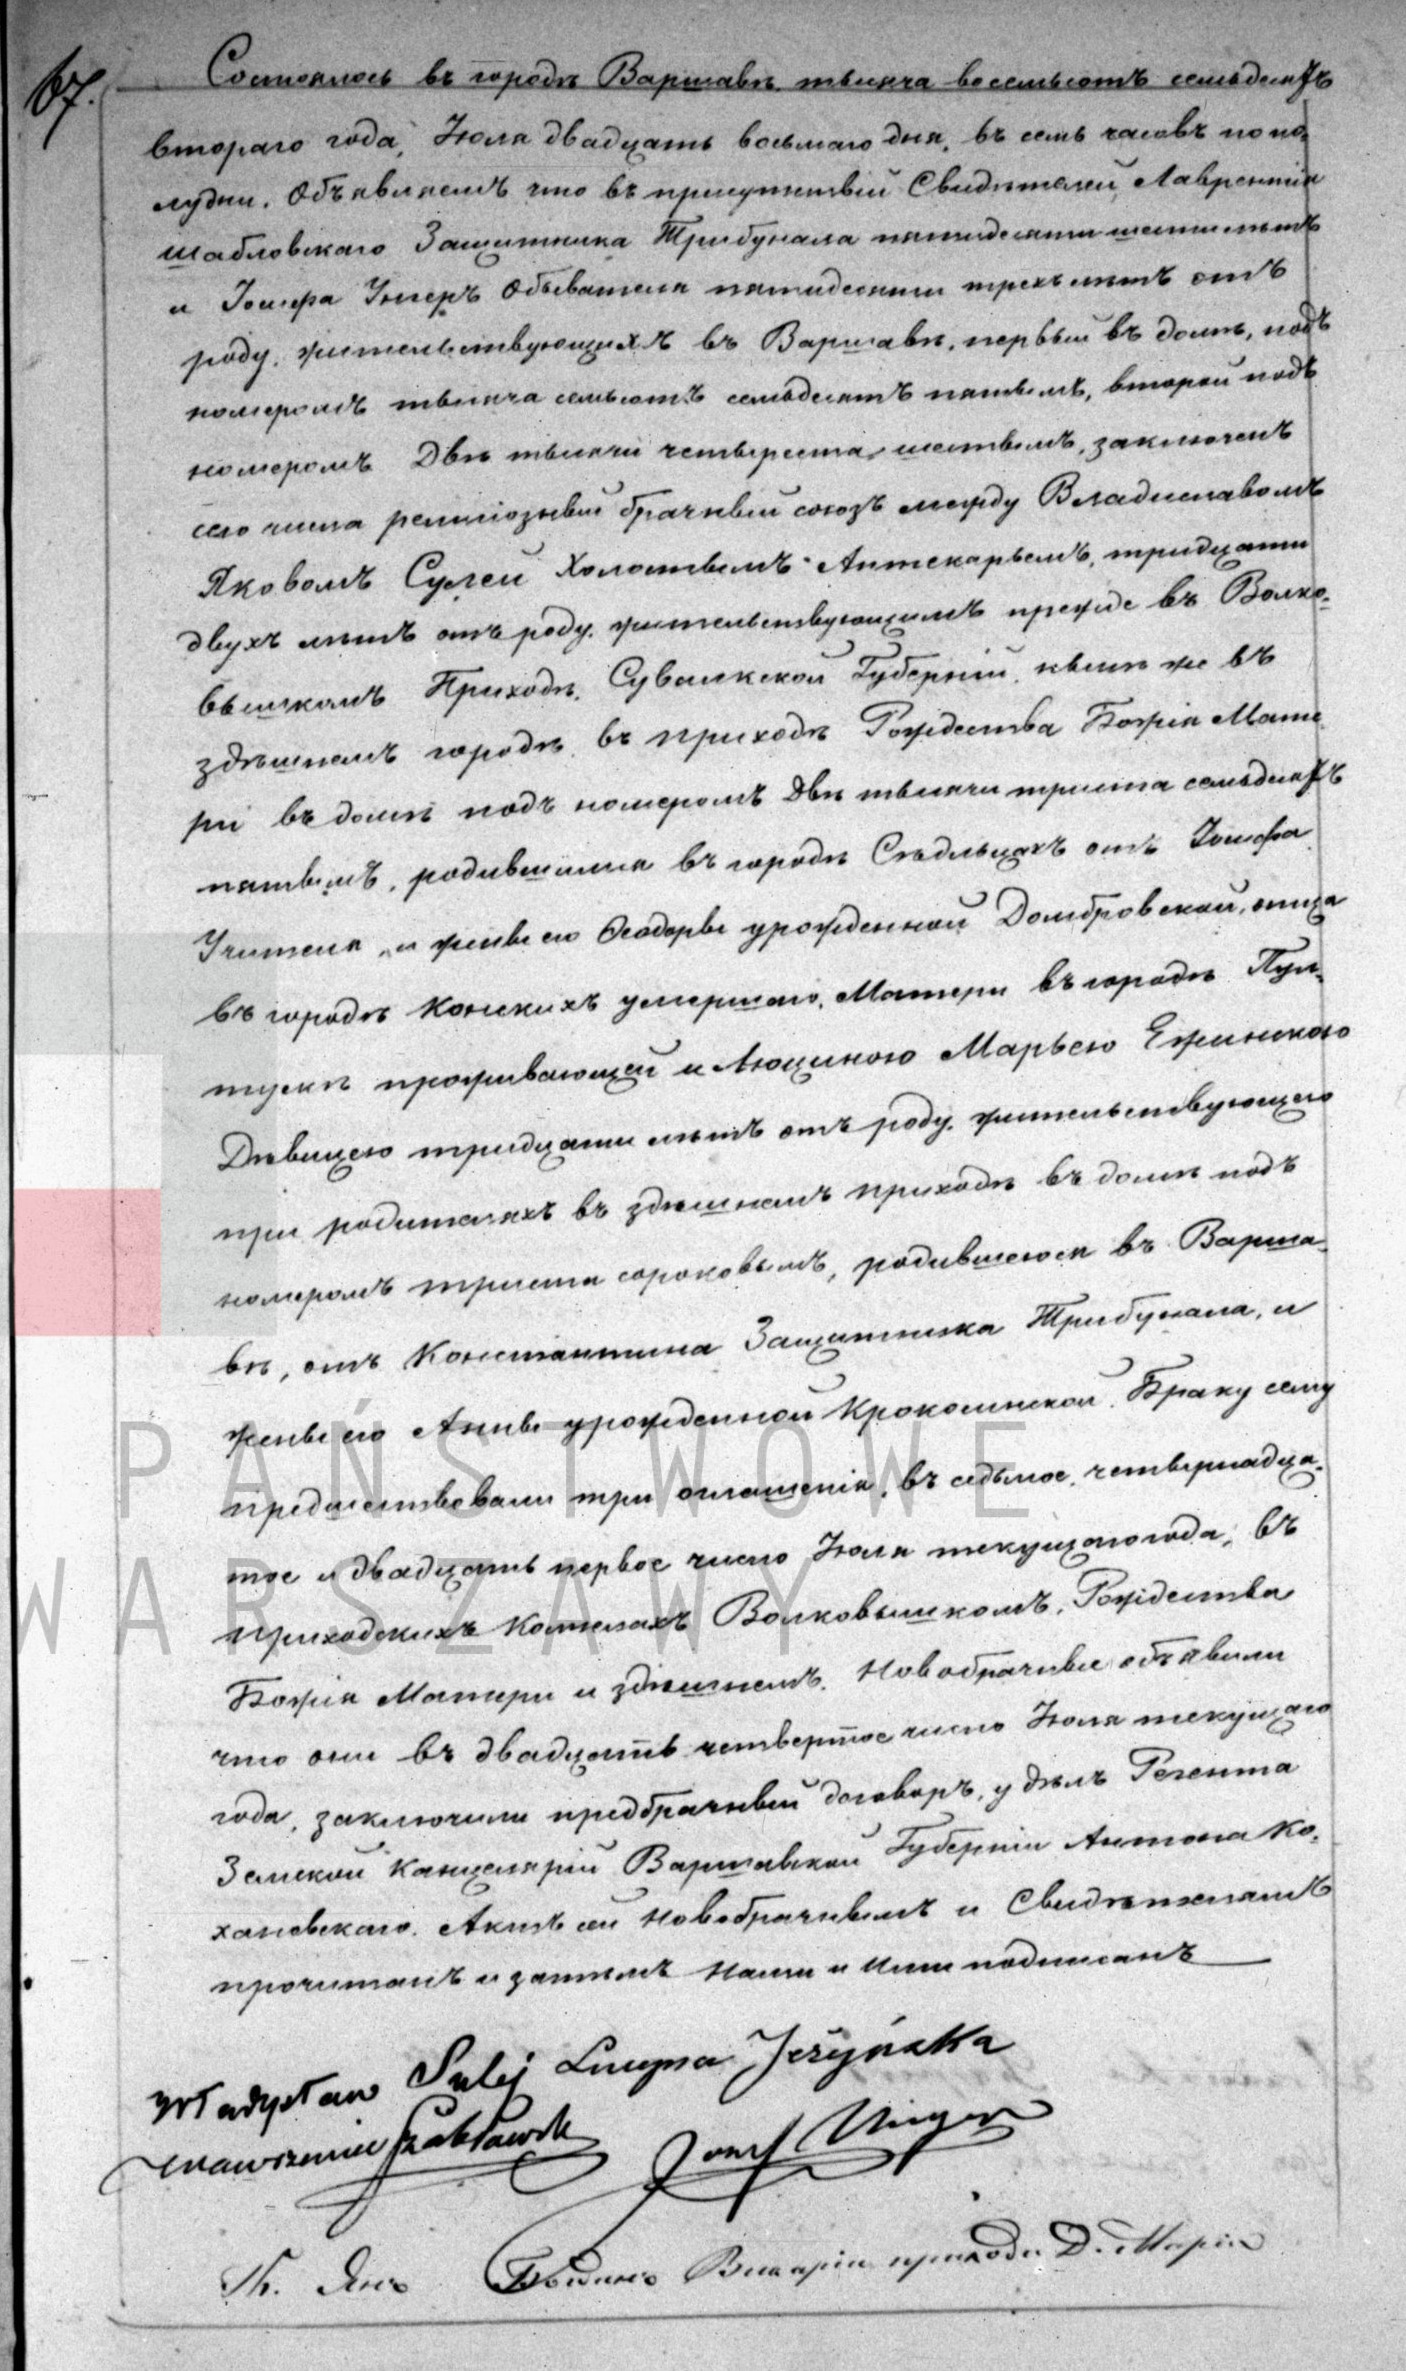 67.
Состоялось въ городѣ Варшавѣ тысяча восемьсотъ семьдесятъ
втораго года, Іюля двадцать восьмаго дня, въ семь часовъ попо-
лудни. Объявляемъ что въ присутствіи Свидѣтелей, Лаврентія
Шабловскаго Защитника Трибунала пятидесяти шести лѣтъ
и Іосифа Унгеръ Обывателя пятидесяти трехъ лѣтъ отъ
роду, жительствующихъ въ Варшавѣ, первый въ домѣ, подъ
номеромъ тысяча семьсотъ семьдесятъ пятымъ, второй подъ
номеромъ Двѣ тысячи четыреста шестымъ, заключенъ
сего числа религіозный брачный союзъ между Владиславомъ
Яковомъ Сулей Холостымъ Аптекарьемъ, тридцати
двухъ лѣтъ отъ роду, жительствующимъ прежде въ Волко-
вышкомъ Приходѣ, Сувалкской Губерніи, нынѣ же въ
здѣшнемъ городѣ, въ приходѣ Рождества Божія Мате-
ри въ домѣ подъ номеромъ Двѣ тысячи триста семьдесятъ
пятымъ, родившимся въ городѣ Сѣдльцахъ отъ Іосифа
Учителя, и жены его Ѳеодоры урожденной Домбровской, отца
въ городѣ Конскихъ умершаго, Матери въ городѣ Пул-
тускѣ проживающей и Люциною Марьею Ежинскою
Дѣвицею тридцати лѣтъ отъ роду, жительствующею
при родителяхъ въ здѣшнемъ приходѣ въ домѣ подъ
номеромъ триста сороковымъ, родившеюся въ Варша-
вѣ, отъ Константина Защитника Трибунала, и
жены его Анны урожденной Крокосинской. Браку сему
предшествовали три оглашенія, въ седьмое, четырнадца-
тое и двадцать первое число Іюля текущаго года, въ
приходскихъ Костелахъ Волковышкомъ, Рождества
Божія Матери и здѣшнемъ. Новобрачные объявили
что они въ двадцать четвертое число Іюля текущаго
года, заключили предбрачный договоръ, у дѣлъ Регента
Земской Канцеляріи Варшавской Губерніи Антона Ко-
хановскаго. Актъ сей Новобрачнымъ и Свидѣтелямъ
прочитанъ и затѣмъ Нами и Ими подписанъ
Władysław Sulej Lucyna Jeżyńska
Wawrzeniec Szabłowsk Józef Unger
Кс. Янъ Викарій прихода Д. Маріи
PAŃSTWOWE
WARSZAWY